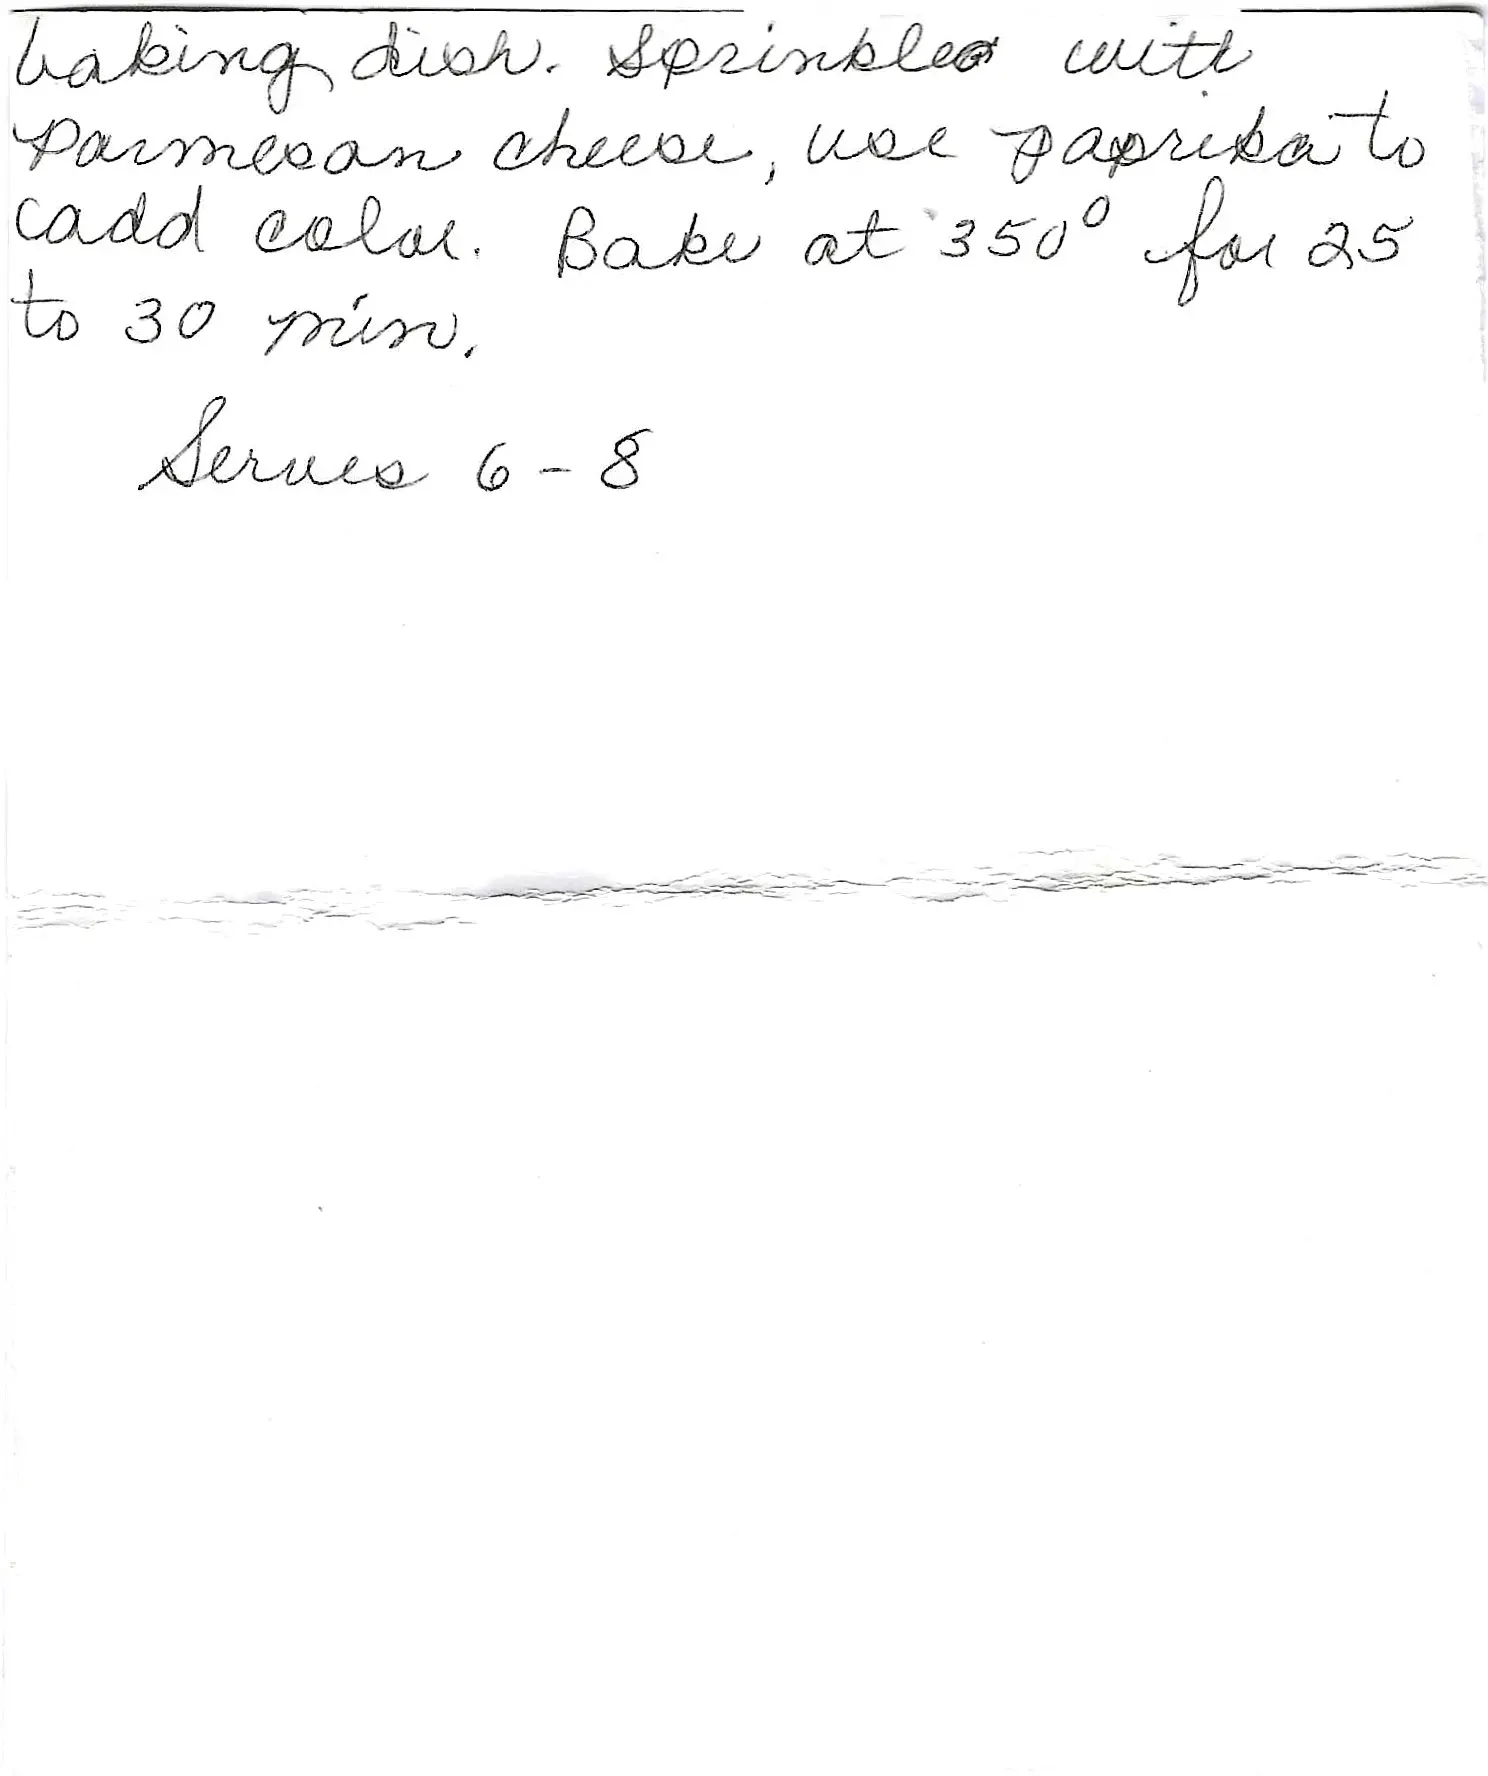 baking dish. Sprinkle with
Parmesan cheese, use paprika to
add color. Bake at 350° for 25
to 30 min.
Serves 6-8